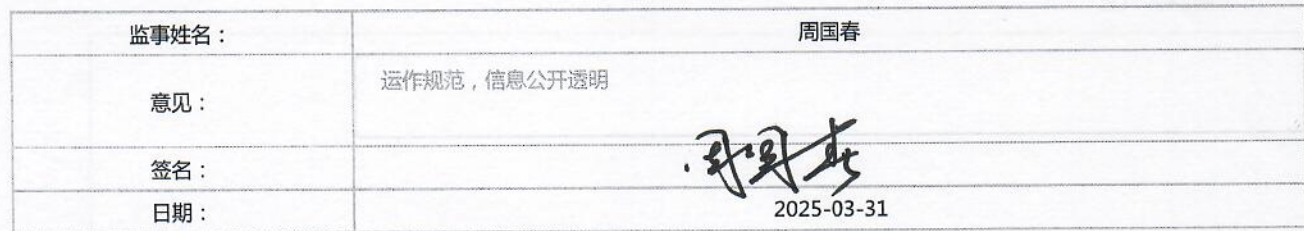 监事姓名： 周国春
意见： 运作规范，信息公开透明
签名： 周国春
日期： 2025-03-31